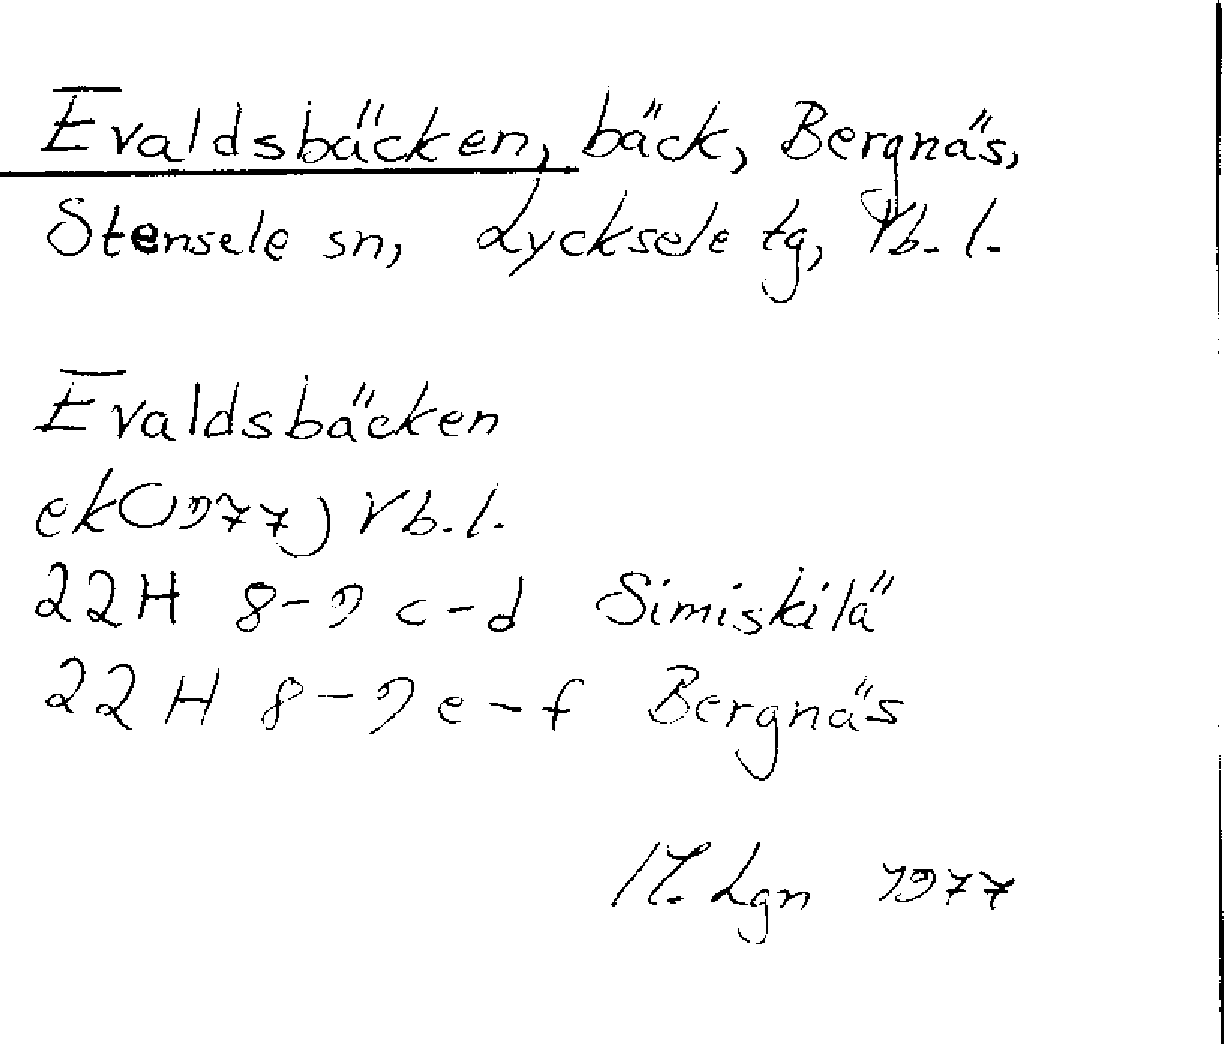 Evaldsbäcken, bäck, Bergnäs,
Stensele sn, Lycksele tg, Vb. l.
Evaldsbäcken
ek(1977) Vb. l.
22H 8-9 c-d Simiskilä
22H 8-9 e-f Bergnäs
Lgn 1977